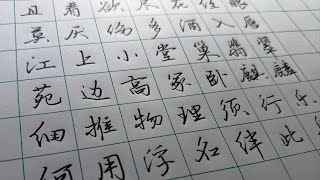 且看欲尽花经眼
莫厌伤多酒入唇
江上小堂巢翡翠
苑边高冢卧麒麟
细推物理须行乐
何用浮名绊此